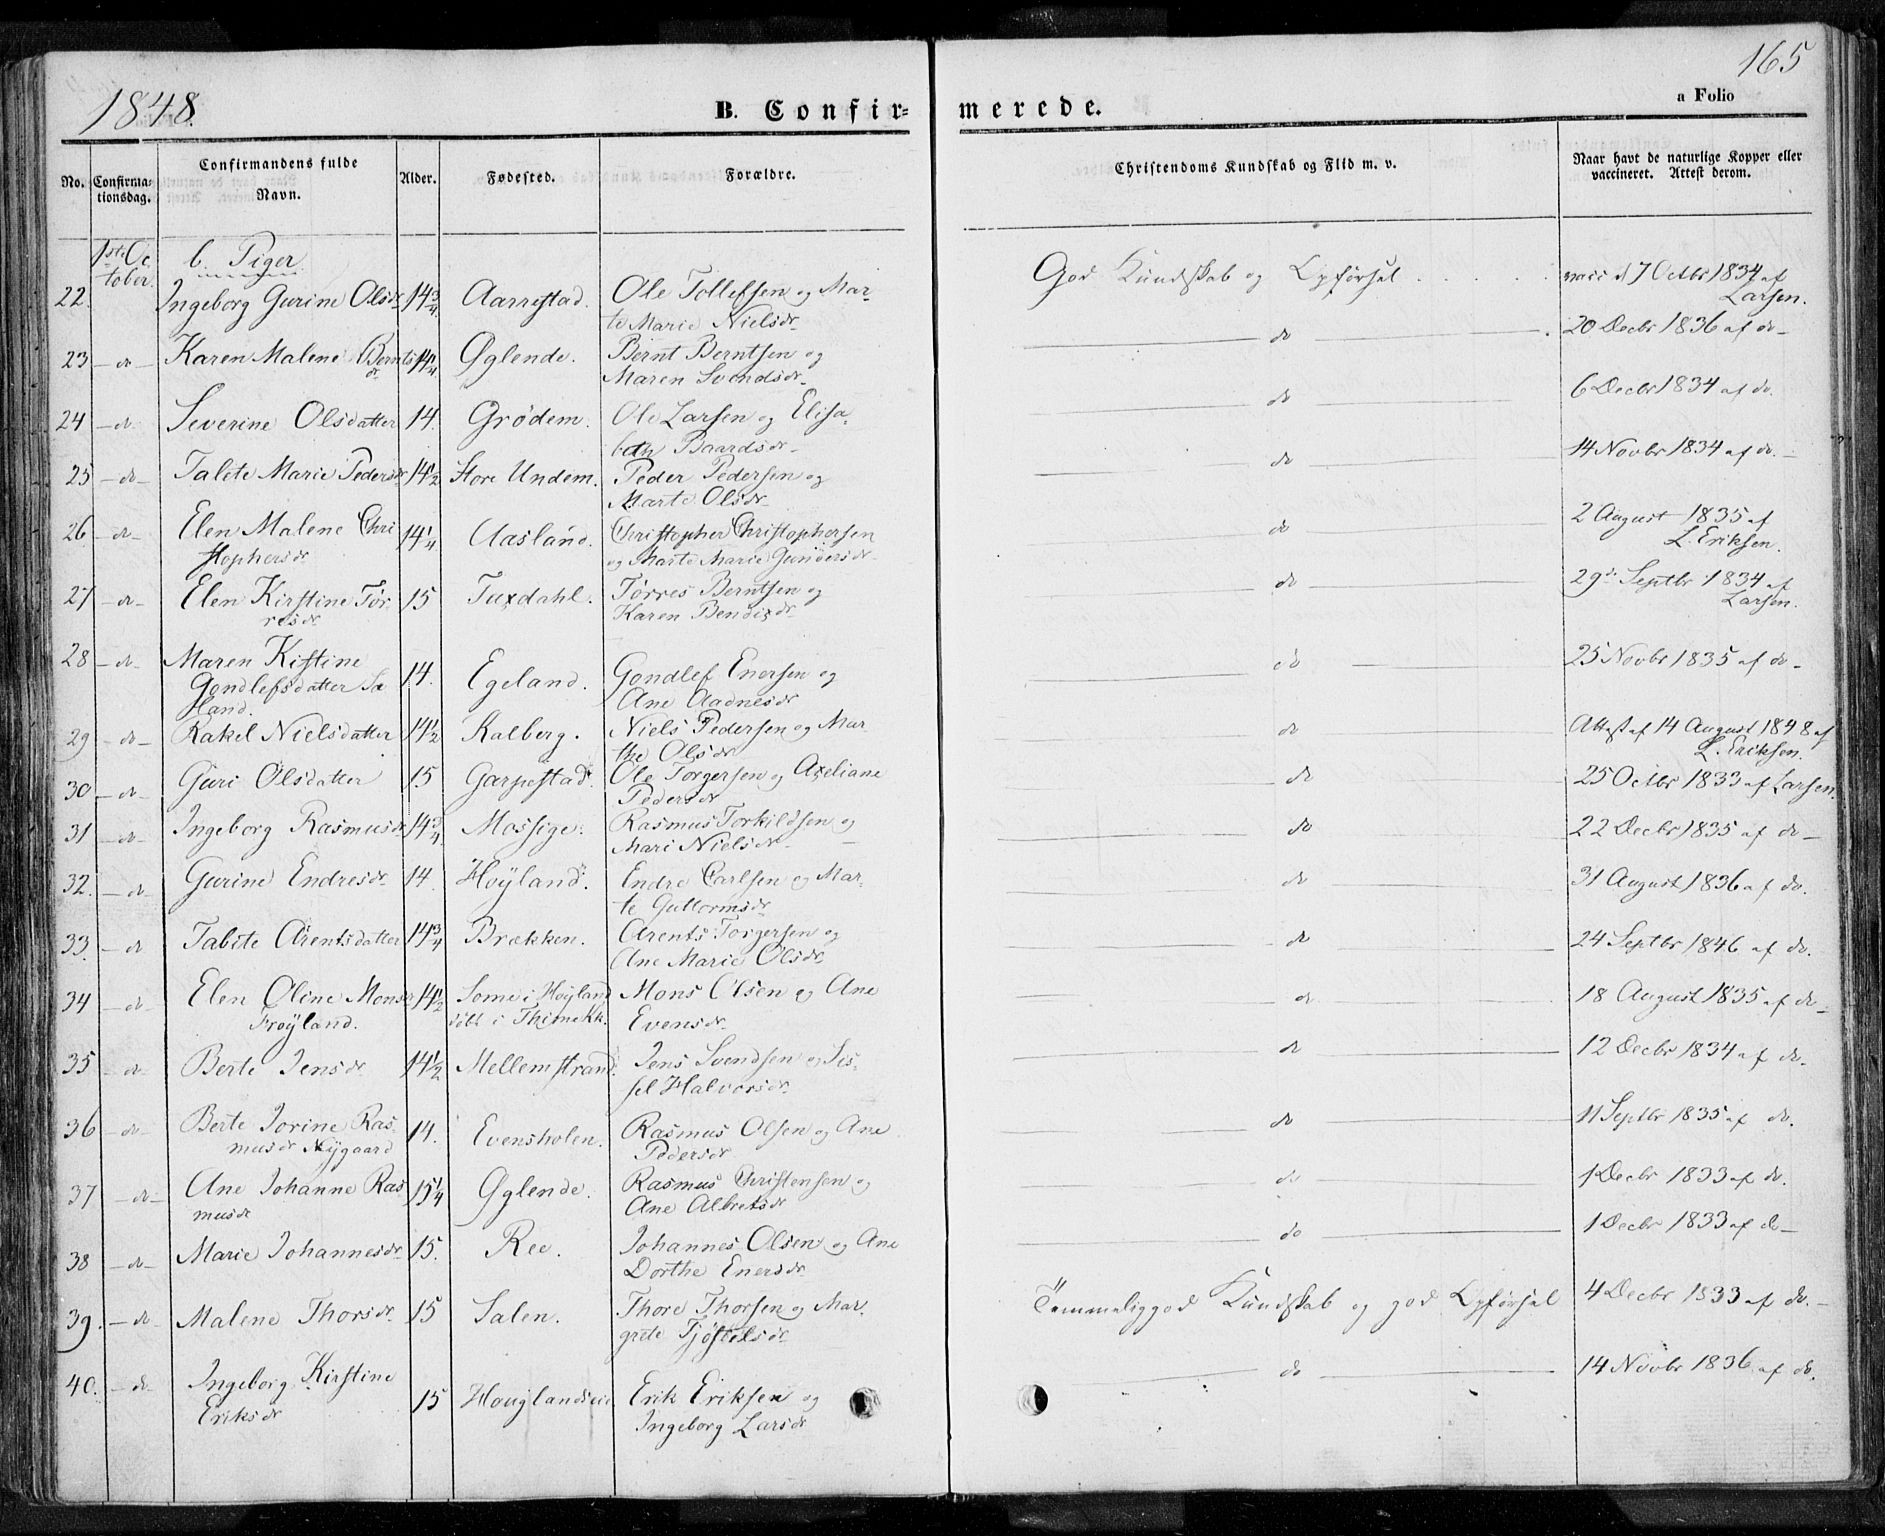 1848.
165
B. Confir=
merede.
a Folio
No.
Confirma-
tionsdag.
Confirmandens fulde
Navn.
Alder.
Fødested.
Forældre.
Christendoms Kundskab og Flid m. v.
Naar havt de naturlige Kopper eller
vaccineret. Attest derom.
1ste Oc
tober
b. Piger
22. Ingeborg Gurine Olsdr 14 3/4 Aarrestad. Ole Tollefsen og Mar-
te Marie Nielsdr
God Kundskab og Opførsel vacc d 7 Octbr 1834 af
Larsen.
23 - do - Karen Malene Bernts 14 1/4 Øglende. Bernt Berntsen og
dr Maren Svendsdr
do 20 Decbr 1836 af do
24 - do Severine Olsdatter 14 Grødem. Ole Larsen og Elisa,
beth Baardsdr
do 6 Decbr 1834 af do.
25 - do - Talete Marie Pedersdr 14 1/2 Store Undem. Peder Pedersen og
Marte Olsdr
do 14 Novbr 1834 af do.
26 - do - Elen Malene Chri 14 1/4 Aasland. Christopher Christophersen
stophersdr og Marte Marie Gundersdr
do 2 August 1835 af
L. Eriksen.
27 - do - Elen Kirstine Tør, 15 Tuxdahl. Tørres Berntsen og
resdr Karen Bendixdr
do 29de Septbr 1834 af
Larsen.
28 - do - Maren Kistine
Gondlefsdatter Sæ 14. Egeland. Gondlef Enersen og
land. Ane Aadnesdr
do 25 Novbr 1835 af do
29 - do - Rakel Nielsdatter 14 1/2 Kalberg. Niels Pedersen og Mar
the Olsdr
do Attest af 14 August 1848 af
L. Eriksen.
30 - do Guri Olsdatter 15 Garpestad. Ole Torgersen og Axeliane
Pedersdr
do 25 Octbr 1833 af Larsen.
31 - do Ingeborg Rasmusdr 14 3/4 Mossige. Rasmus Torkildsen og
Mari Nielsdr
do 22 Decbr 1835 af do
32. - do Gurine Endresdr 14 Høyland. Endre Carlsen og Mar-
te Guttormsdr
do 31 August 1836 af do.
33. - do Tabite Arentsdatter 14 3/4 Brækken. Arents Torgersen og
Ane Marie Olsdr
do 24 Septbr 1846 af do.
34 - do Elen Oline Monsdr 14 1/2 Some i Høyland Mons Olsen og Ane
Frøyland. døbt i Thimekk. Evensdr
do 18 August 1835 af do
35 - do Berte Jensdr 14 1/2 Mellemstrand. Jens Svendsen og Sis-
sel Halvorsdr
do 12 Decbr 1834 af do.
36 - do - Berte Jorine Ras 14. Evensholen. Rasmus Olsen og Ane
musdr Nygaard Pedersdr
do 11 Septbr 1835 af do.
37 - do - Ane Johanne Ras 15 1/4 Øglende. Rasmus Christensen og
musdr Ane Albretsdr
do 1 Decbr 1833 af do.
38 - do - Marie Johannesdr 15. Ree. Johannes Olsen og Ane
Dorthe Enersdr
do 1 Decbr 1833 af do
39. - do - Malene Thorsdr 15 Salen. Thore Thorsen og Mar,
grete Tjøstelsdr
Temmelig god Kundskab og god Opførsel 4 Decbr 1833 af do.
40. - do Ingeborg Kirstine
Eriksdr 15 Houglandseie Erik Eriksen og
Ingeborg Larsdr
do 14 Novbr 1836 af do.